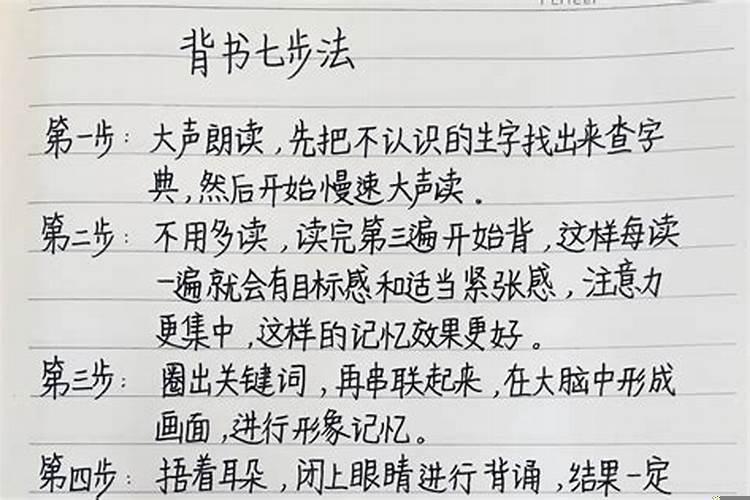 背书七步法
第一步：大声朗读，先把不认识的生字找出来查字
典，然后开始慢速大声读。
第二步：不用多读，读完第三遍开始背，这样每读
一遍就会有目标感和适当紧张感，注意力
更集中，这样的记忆效果更好。
第三步：圈出关键词，再串联起来，在大脑中形成
画面，进行形象记忆。
第四步：捂着耳朵，闭上眼睛进行背诵，结果一定